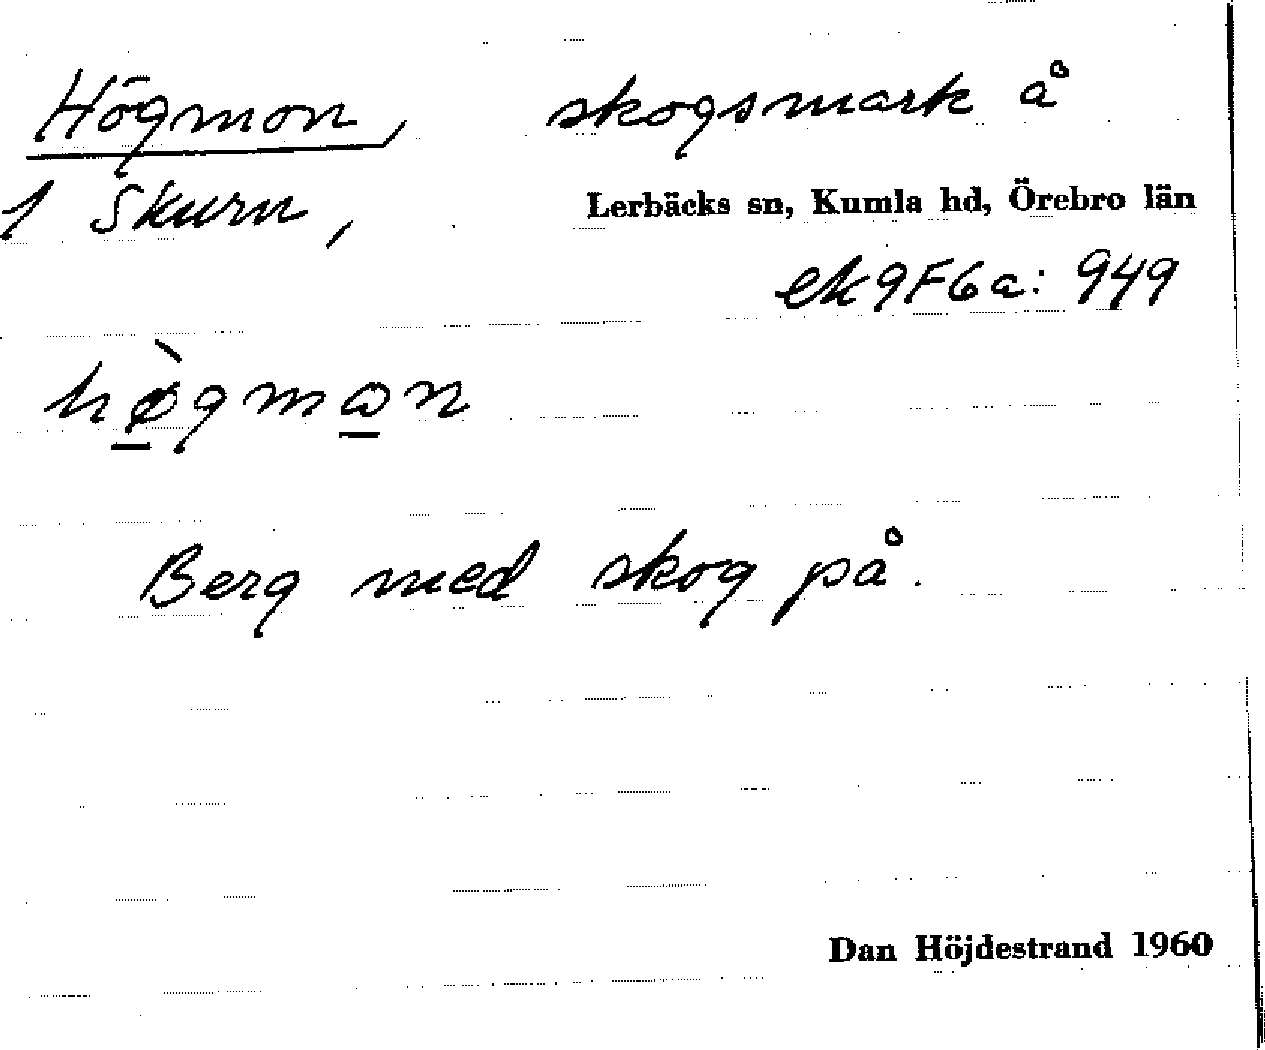 Högmon, skogsmark å
1 Skurn, Lerbäcks sn, Kumla hd, Örebro län
ek 9F6a: 949
hø̲̀gmo̲n
Berg med skog på.
Dan Höjdestrand 1960